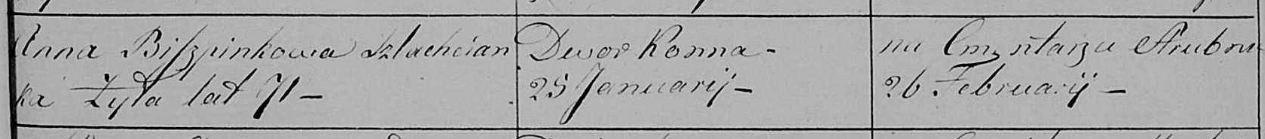 Anna Biszpinkowa Szlachcian
ka Żyła lat 71 —
Dwor Konna -
25 Januarij —
na Cmętarzu
26 Februarij —